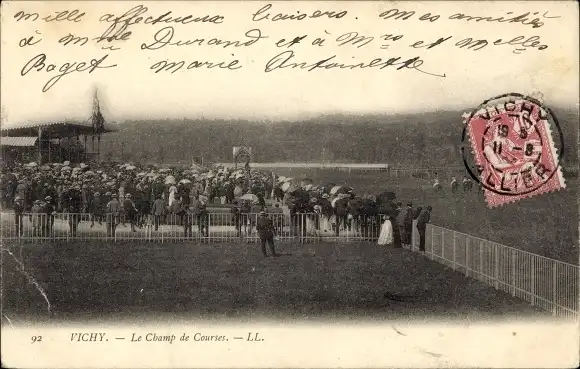 mille affectueux baisers. Mes amitiés
à Mme Durand et à Mrs et Melles
Baget Marie Antoinette
VICHY
19
11 - 8
ALLIER
92 VICHY. — Le Champ de Courses. — LL.